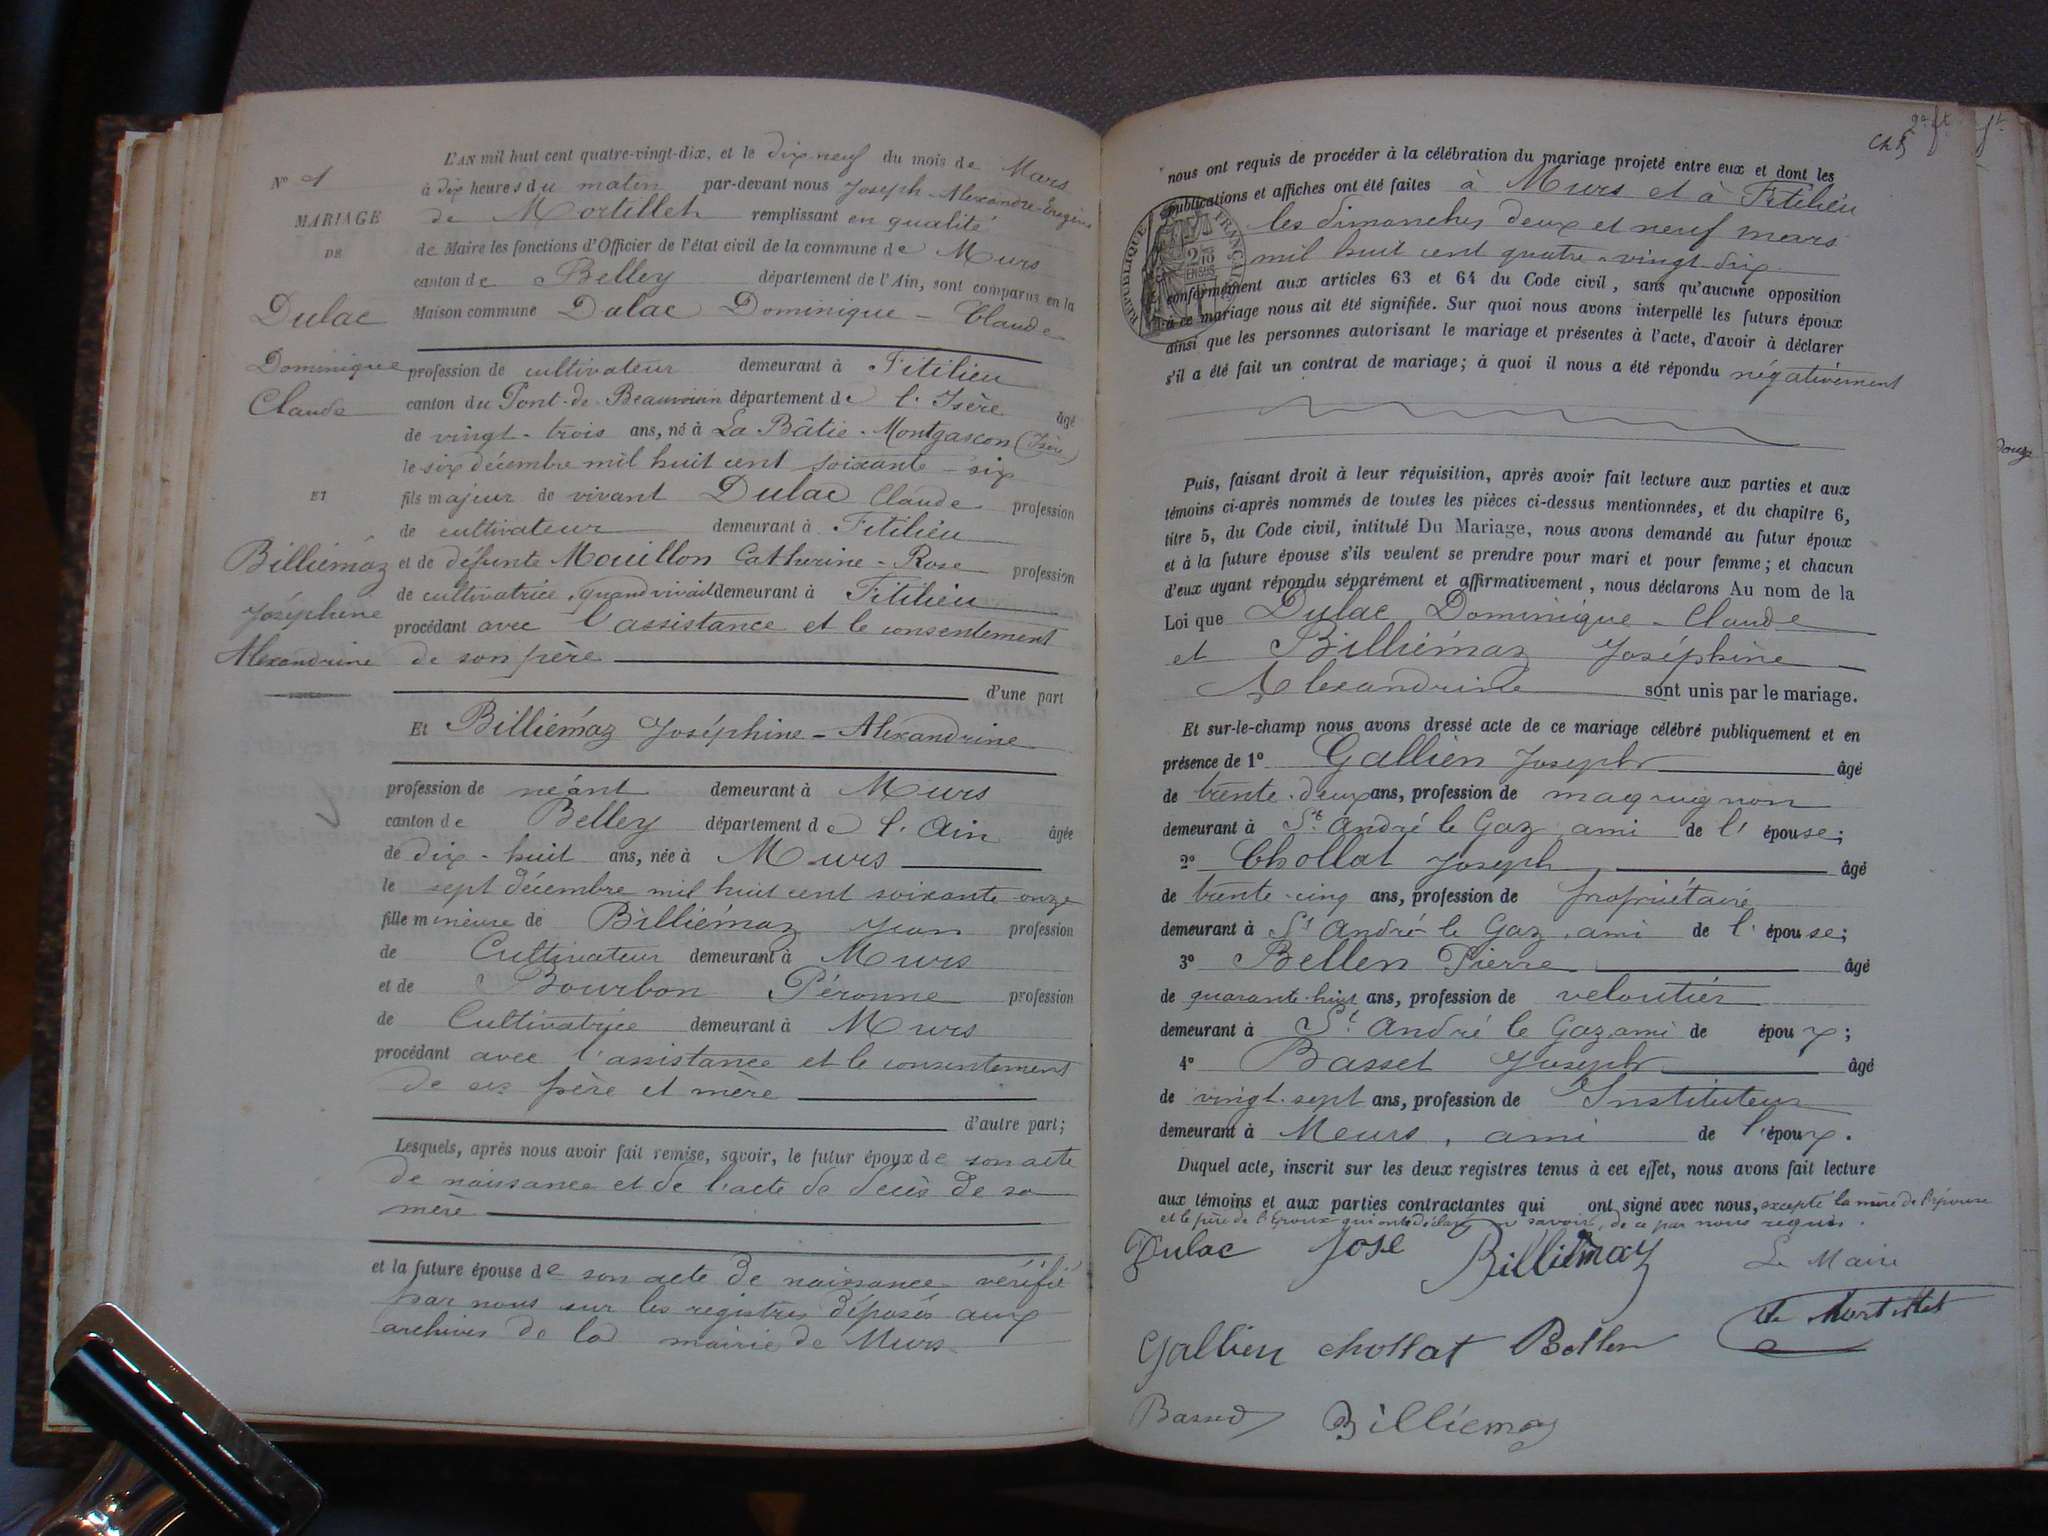 L'AN mil huit cent quatre-vingt-dix, et le dix neuf du mois de Mars
à dix heures du matin par-devant nous Joseph-Alexandre-Eugène
de Mortillet remplissant en qualité
de Maire les fonctions d'Officier de l'état civil de la commune de Murs
canton de Belley département de l'Ain, sont comparus en la
Maison commune Dulac Dominique - Claude
profession de cultivateur demeurant à Fitilieu
canton du Pont-de-Beauvoisin département de l'Isère âgé
de vingt-trois ans, né à La Bâtie-Montgascon (Isère)
le six décembre mil huit cent soixante-six
fils majeur de vivant Dulac Claude profession
de cultivateur demeurant à Fitilieu
et de défunte Mouillon Catherine-Rose profession
de cultivatrice, quand vivait demeurant à Fitilieu
procédant avec l'assistance et le consentement
de son père
d'une part
Et Billiémaz Joséphine-Alexandrine
profession de néant demeurant à Murs
canton de Belley département de l'Ain âgée
de dix-huit ans, née à Murs
le sept décembre mil huit cent soixante onze
fille mineure de Billiémaz Jean profession
de Cultivateur demeurant à Murs
et de Bourbon Péronne profession
de Cultivatrice demeurant à Murs
procédant avec l'assistance et le consentement
de ses père et mère
d'autre part;
Lesquels, après nous avoir fait remise, savoir, le futur époux de son acte
de naissance et de l'acte de decès de sa
mère
et la future épouse de son acte de naissance vérifié
par nous sur les registres déposés aux
archives de la mairie de Murs
N° 1
MARIAGE
DE
Dulac
Dominique
Claude
ET
Billiémaz
Joséphine
Alexandrine
nous ont requis de procéder à la célébration du mariage projeté entre eux et dont les
publications et affiches ont été faites à Murs et à Fitilieu
les dimanches deux et neuf mars
mil huit cent quatre-vingt-dix
conformément aux articles 63 et 64 du Code civil, sans qu'aucune opposition
à ce mariage nous ait été signifiée. Sur quoi nous avons interpellé les futurs époux
ainsi que les personnes autorisant le mariage et présentes à l'acte, d'avoir à déclarer
s'il a été fait un contrat de mariage; à quoi il nous a été répondu négativement
RÉPUBLIQUE FRANÇAISE
Puis, faisant droit à leur réquisition, après avoir fait lecture aux parties et aux
témoins ci-après nommés de toutes les pièces ci-dessus mentionnées, et du chapitre 6,
titre 5, du Code civil, intitulé Du Mariage, nous avons demandé au futur époux
et à la future épouse s'ils veulent se prendre pour mari et pour femme; et chacun
d'eux ayant répondu séparément et affirmativement, nous déclarons Au nom de la
Loi que Dulac Dominique-Claude
et Billiémaz Joséphine
Alexandrine sont unis par le mariage.
Et sur-le-champ nous avons dressé acte de ce mariage célébré publiquement et en
présence de 1° Gallien Joseph âgé
de trente-deux ans, profession de maquignon
demeurant à St André le Gaz, ami de l'épouse;
2° Chollat Joseph âgé
de trente-cinq ans, profession de propriétaire
demeurant à St André le Gaz, ami de l'épouse;
3° Bellen Pierre âgé
de quarante-huit ans, profession de veloutier
demeurant à St André le Gaz ami de époux;
4° Basset Joseph âgé
de vingt-sept ans, profession de Instituteur
demeurant à Meurs, ami de l'époux.
Duquel acte, inscrit sur les deux registres tenus à cet effet, nous avons fait lecture
aux témoins et aux parties contractantes qui ont signé avec nous, excepté la mère de l'épouse
et le père de l'époux qui ont déclaré savoir, de ce par nous requis.
Dulac José Billiémaz Le Maire
de Mortillet
Gallien chollat Bellen
Basset Billiemaz